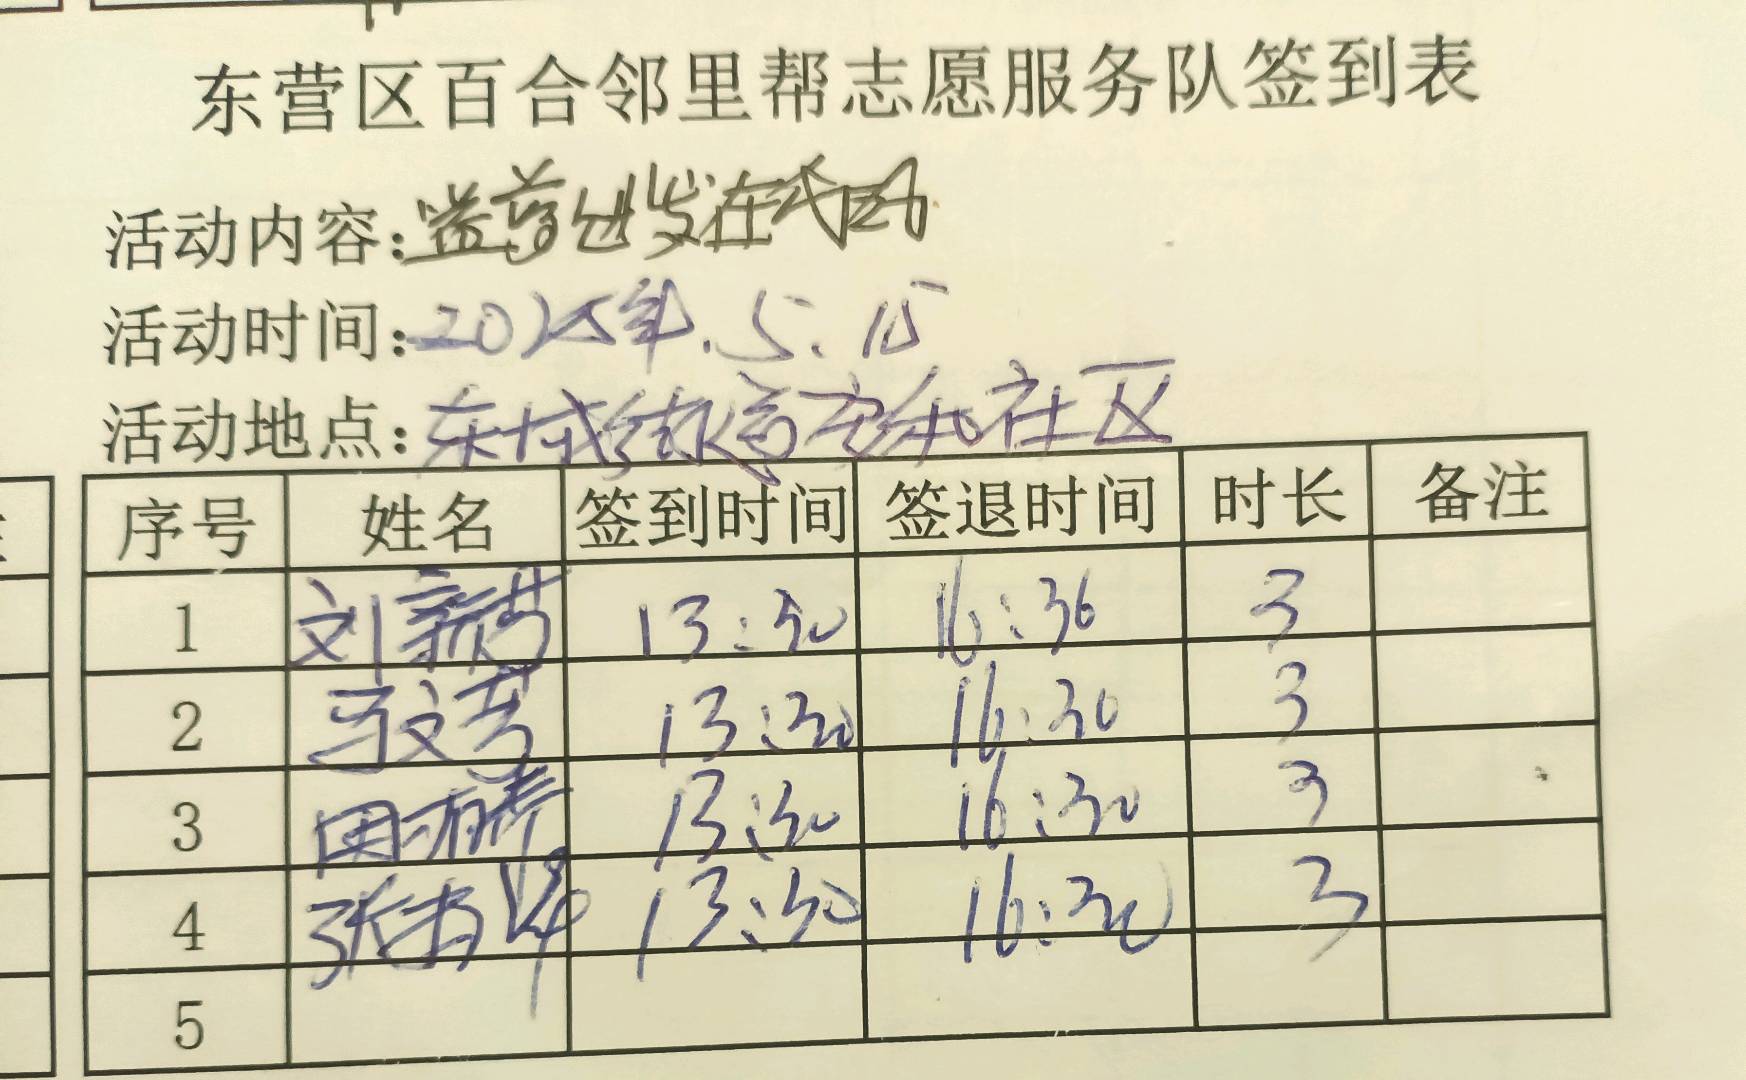 东营区百合邻里帮志愿服务队签到表
活动内容：益首出发在东风
活动时间：2025年.5.15
活动地点：东城街道安和社区
序号 姓名 签到时间 签退时间 时长 备注
1 刘新芳 13:30 16:36 3
2 马文芳 13:30 16:30 3
3 田 13:30 16:30 3
4 张 13:30 16:30 3
5